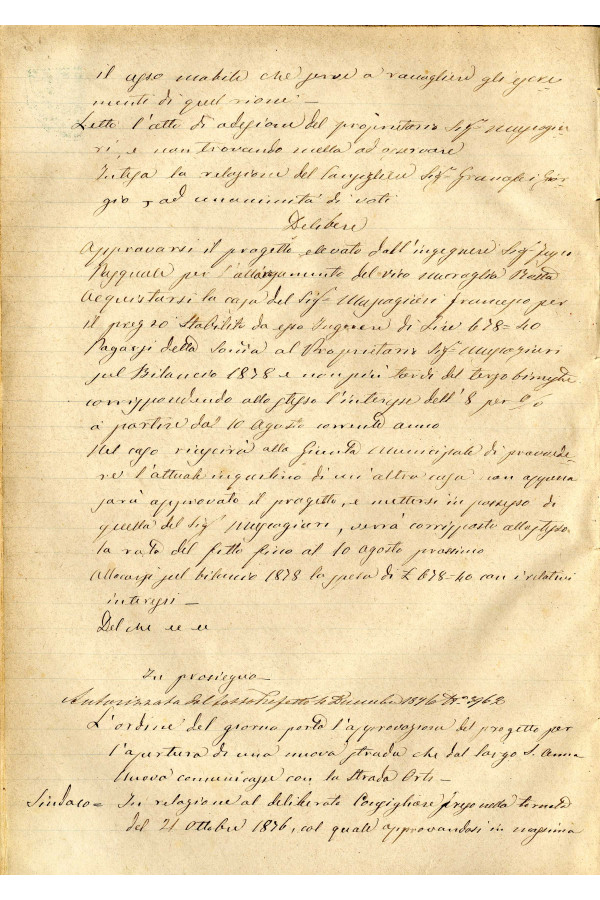 il asso mabile che serve a raccogliere gli escre
menti di quel rione —
Letto l'atto di adesione del proprietario Sig.r Mussogiu
ri, e non trovando nulla ad osservare
Intesa la relazione del Consigliere Sig.r Granafei Gior
gio, ad unanimità di voti
Delibera
Approvarsi il progetto elevato dall'ingegnere Sig.r
Pasquale per l'allargamento del vico Muraglia
Acquistarsi la casa del Sig.r Francesco per
il prezzo stabilito da esso Ingegnere di Lire 678=40
Pagarsi detta somma al Proprietario Sig.r
sul Bilancio 1878 e non più tardi del terzo bimestre
corrispondendo allo stesso l'interesse dell'8 per %
a partire dal 10 Agosto corrente anno
Nel caso riuscirà alla Giunta Municipale di provvede
re l'attuale inquilino di un'altra casa non appena
sarà approvato il progetto, e mettersi in possesso di
quella del Sig.r, verrà corrisposto allo stesso
la rata del fitto fino al 10 agosto prossimo
Allocarsi sul bilancio 1878 la spesa di £ 678=40 con i relativi
interessi —
Del che
In proseguo —
Autorizzata dal Sotto Prefetto 4 Dicembre 1876 N.o 3962
L'ordine del giorno porta l'approvazione del progetto per
l'apertura di una nuova strada che dal largo S. Anna
nuova comunicasse con la Strada Orti —
Sindaco = In relazione al deliberato Consigliare preso nella tornata
del 21 Ottobre 1876, col quale approvandosi in massima